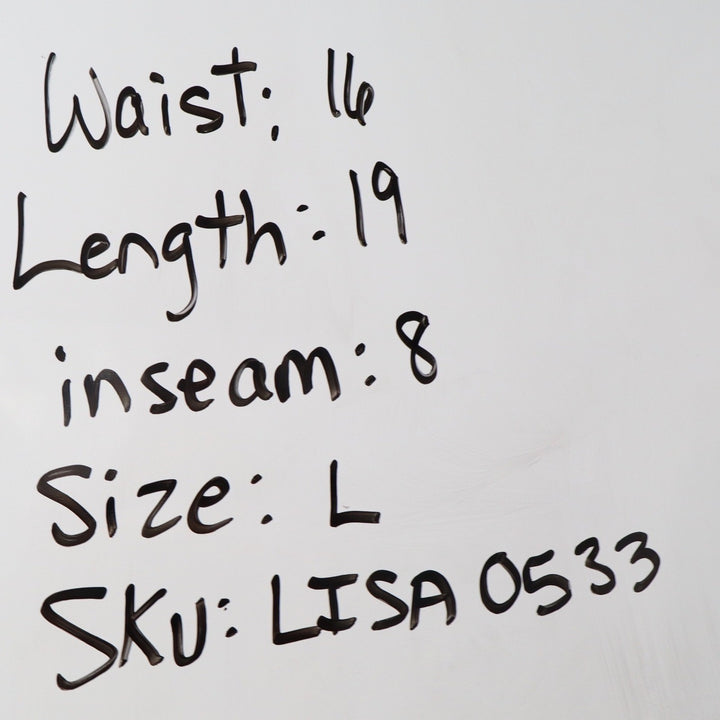 Waist: 16
Length: 19
inseam: 8
Size: L
SKU: LISA 0533